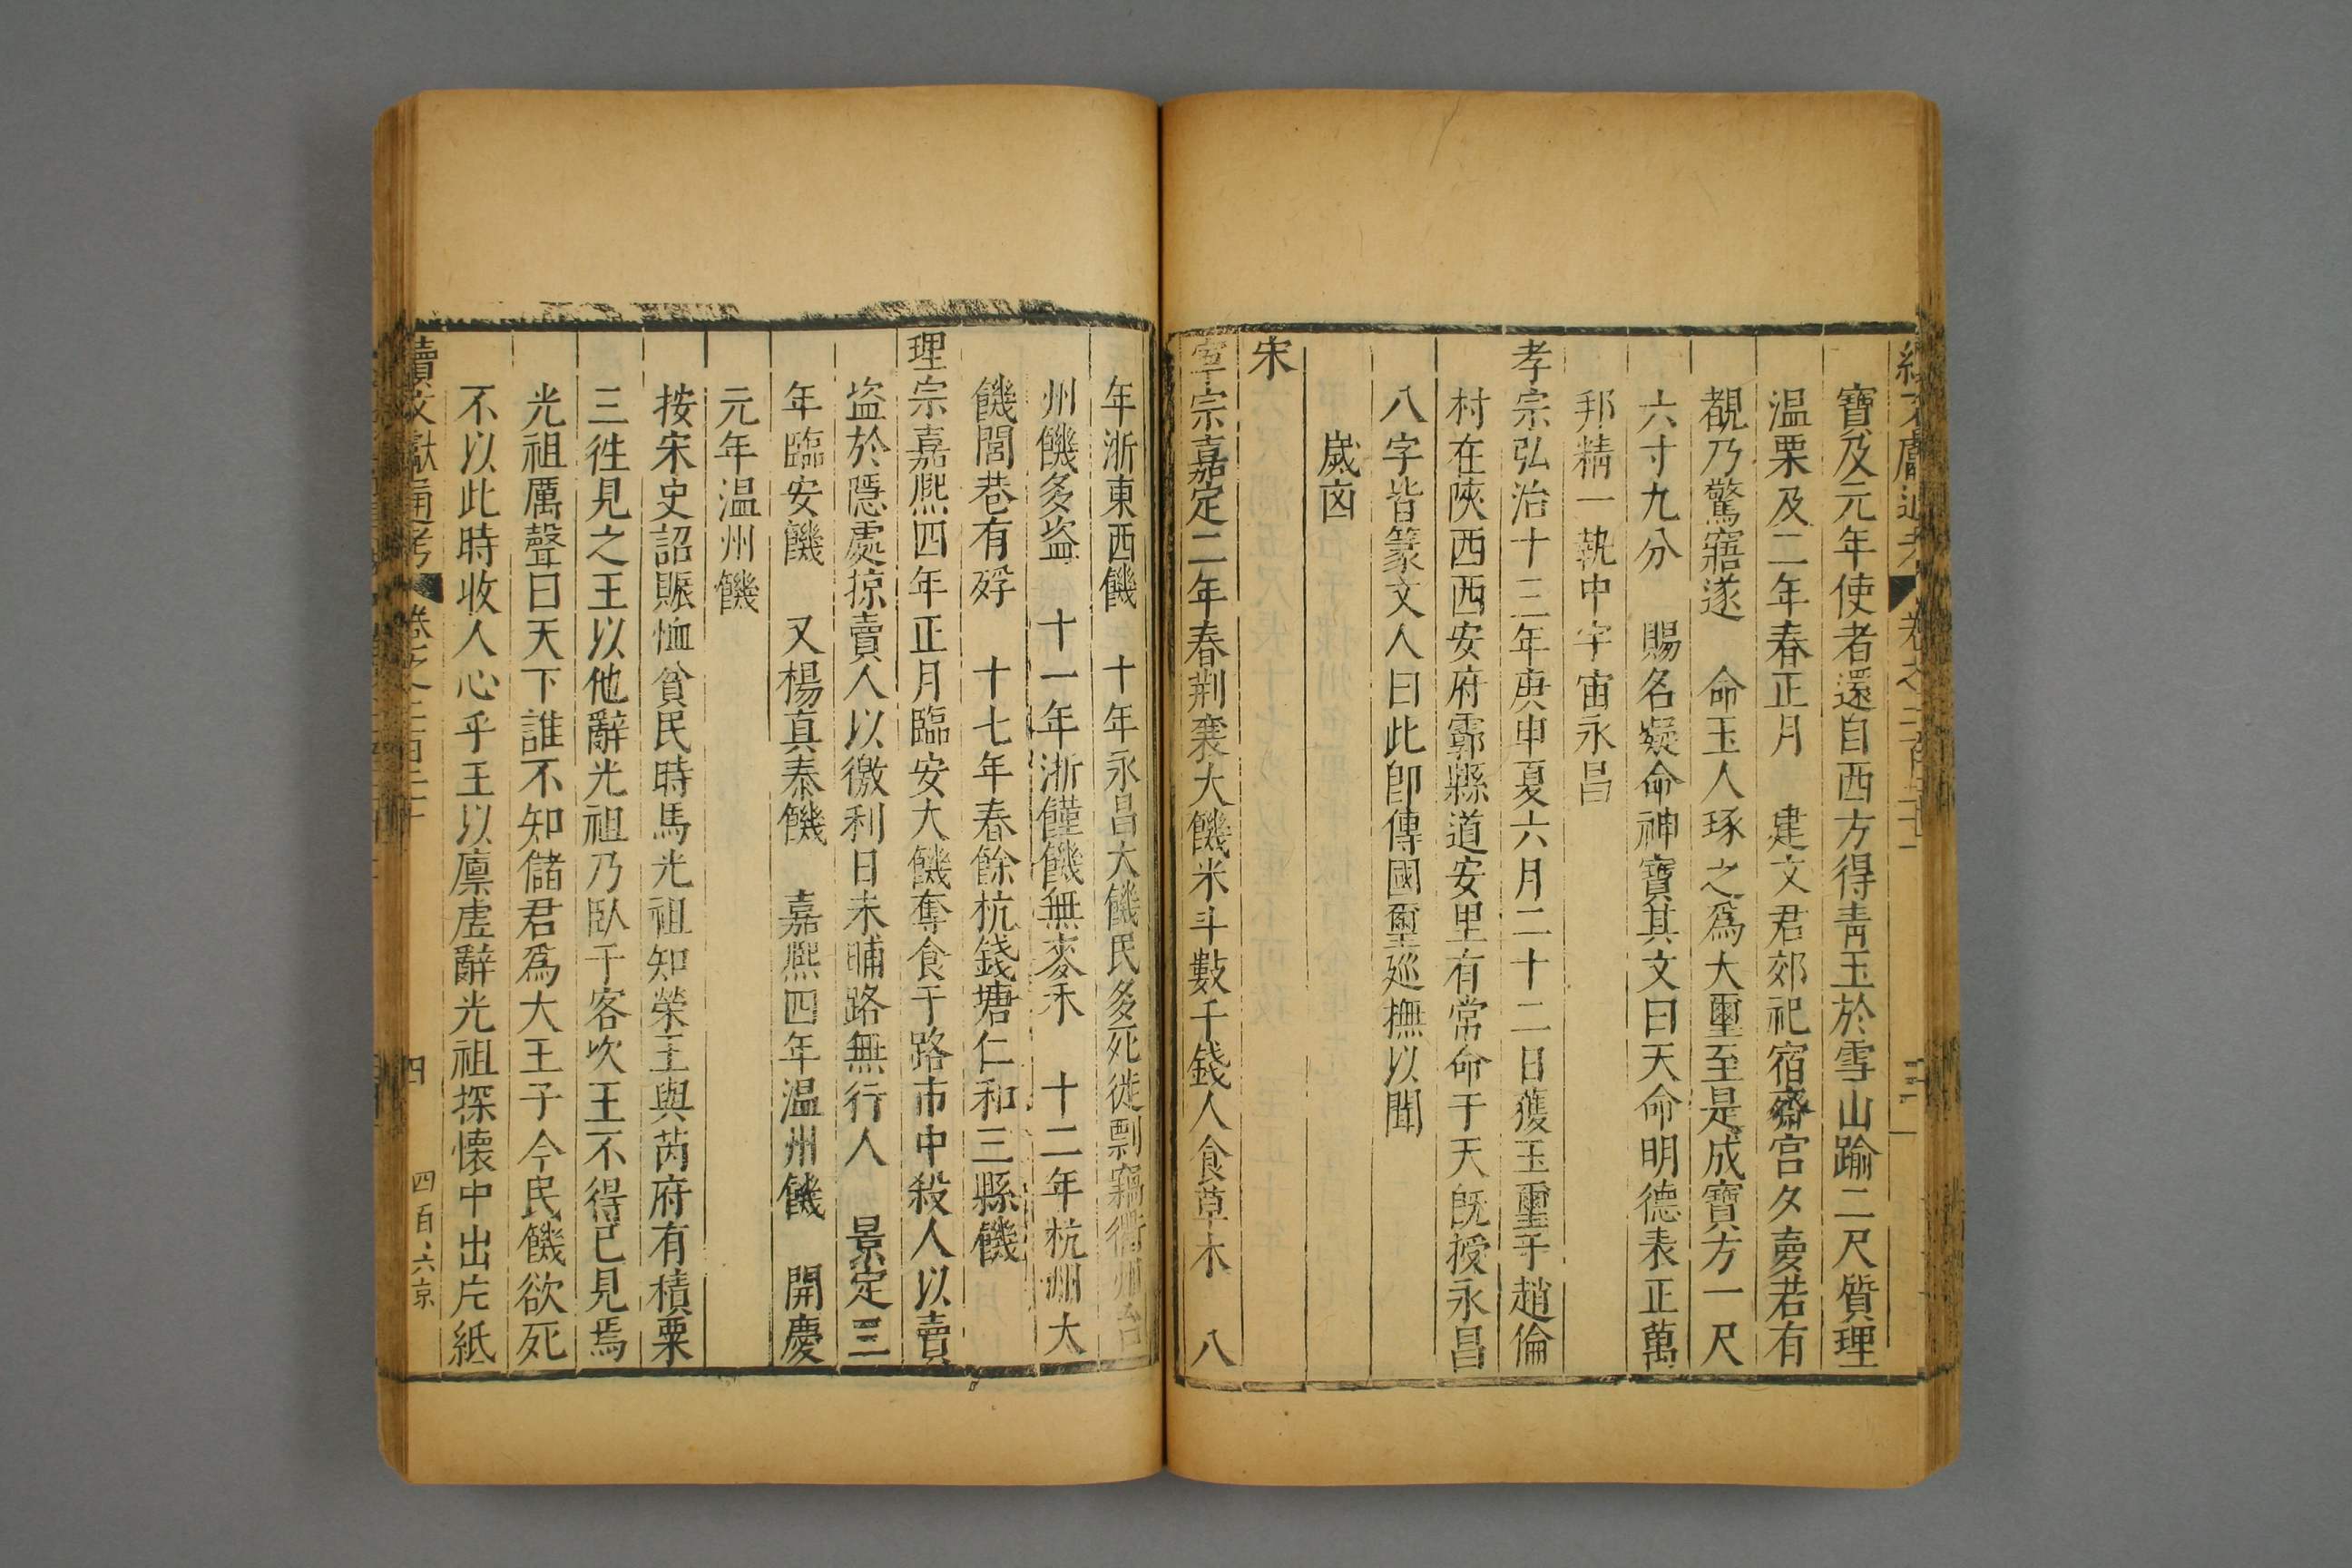 寶及元年使者還自西方得青玉於雪山踰二尺質理
温栗及二年春正月 建文君郊祀宿齋宮夕夢若有
覩乃驚寤遂 命玉人琢之爲大璽至是成寶方一尺
六寸九分 賜名凝命神寶其文曰天命明德表正萬
邦精一執中宇宙永昌
孝宗弘治十三年庚申夏六月二十二日獲玉璽于趙倫
村在陜西西安府鄠縣道安里有常命于天旣授永昌
八字皆篆文人曰此卽傳國璽廵撫以聞
歲㐫
宋
寧宗嘉定二年春荆襄大饑米斗數千錢人食草木 八
年浙東西饑 十年永昌大饑民多死徙剽竊衢州台
州饑多盗 十一年浙饉饑無麥禾 十二年杭州大
饑閭巷有殍 十七年春餘杭錢塘仁和三縣饑
理宗嘉熈四年正月臨安大饑奪食于路市中殺人以賣
盗於隱處掠賣人以徼利日未晡路無行人 景定三
年臨安饑 又楊真泰饑 嘉熈四年温州饑 開慶
元年温州饑
按宋史詔賑恤貧民時馬光祖知榮王與芮府有積粟
三徃見之王以他辭光祖乃臥于客次王不得已見焉
光祖厲聲曰天下誰不知儲君爲大王子今民饑欲死
不以此時收人心乎王以廪虛辭光祖探懷中出片紙
續文獻通考 卷之二百二十
四
四百六京